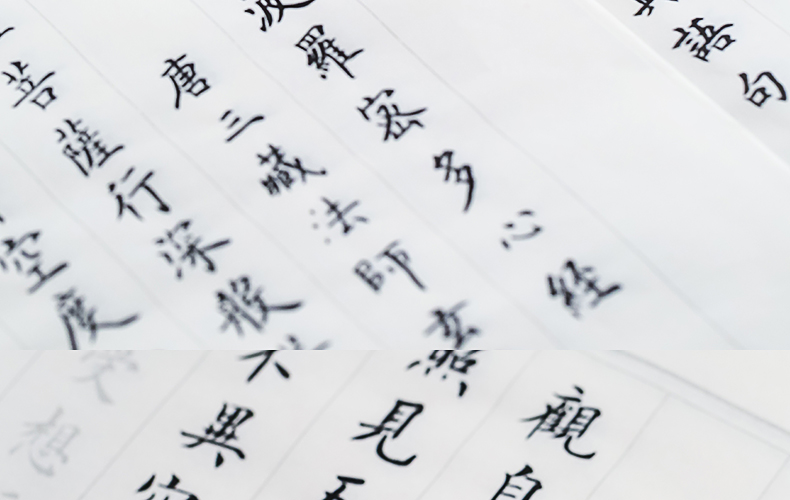 語句
波羅密多心経
唐三藏法師玄
菩薩行深般
空度
觀自
照見五
不異空
受想